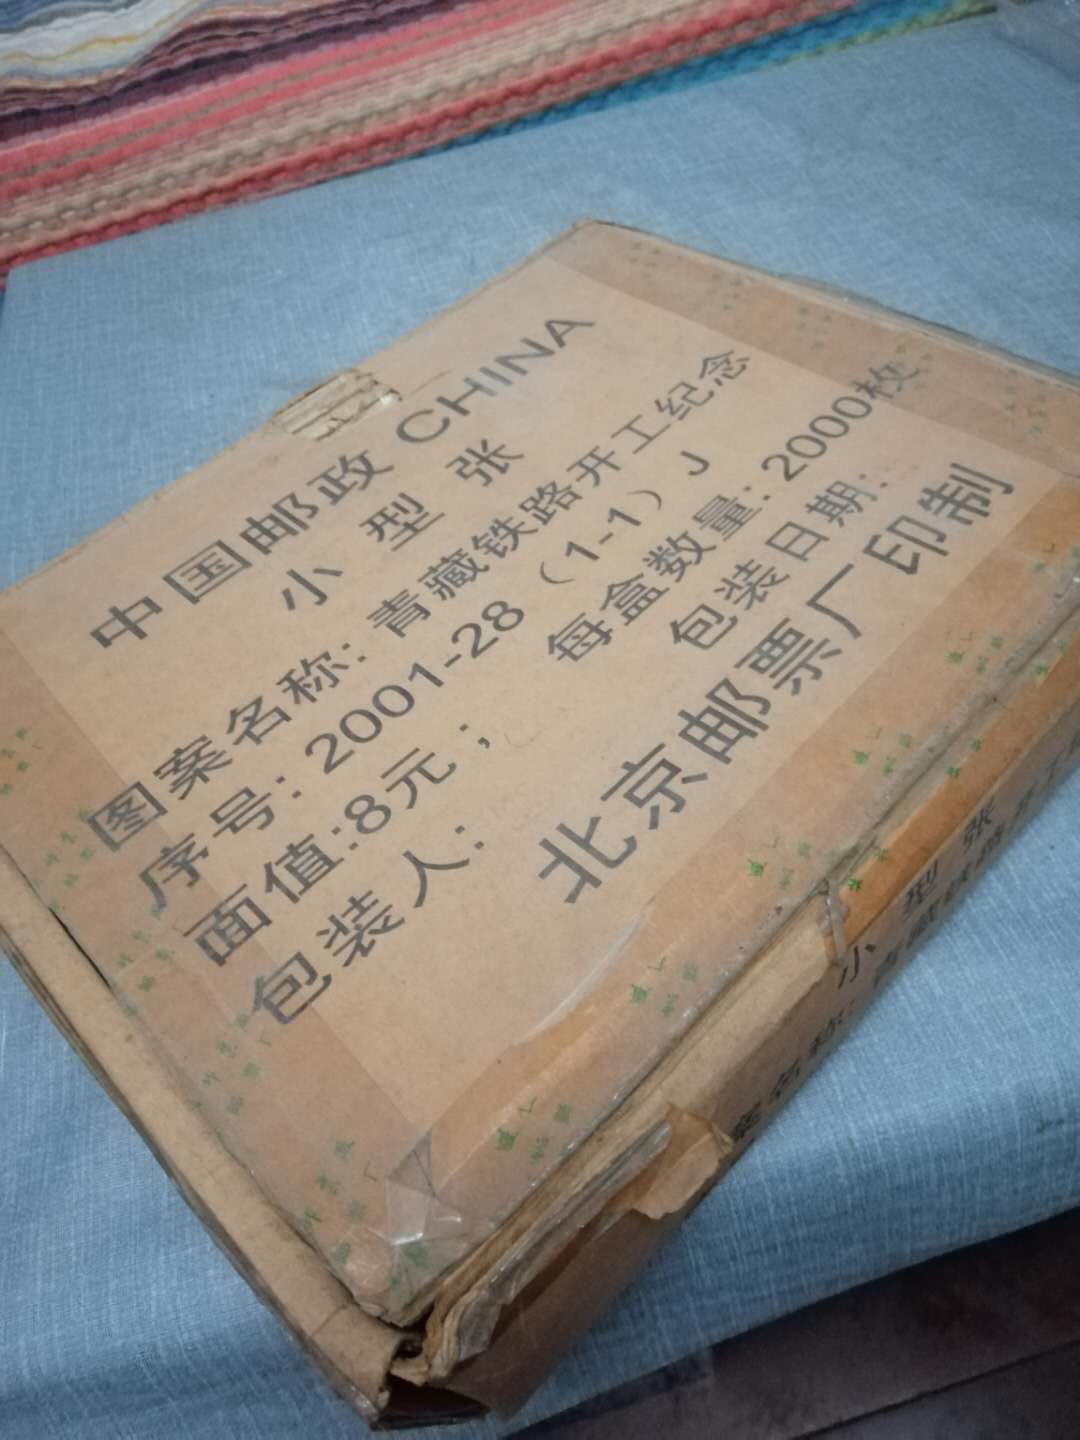 中国邮政 CHINA
小型张
图案名称：青藏铁路开工纪念
序号：2001-28（1-1）J
面值：8元； 每盒数量：2000枚
包装人： 包装日期：
北京邮票厂印制
小型张
名称：